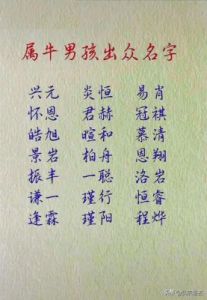 属牛男孩出众名字
兴元 炎恒 易肖
怀恩 君赫 冠祺
皓旭 暄和 慕清
景岩 柏舟 恩翔
振丰 一聪 洛岩
谦一 瑾行 恒睿
逢霖 瑾阳 程烨